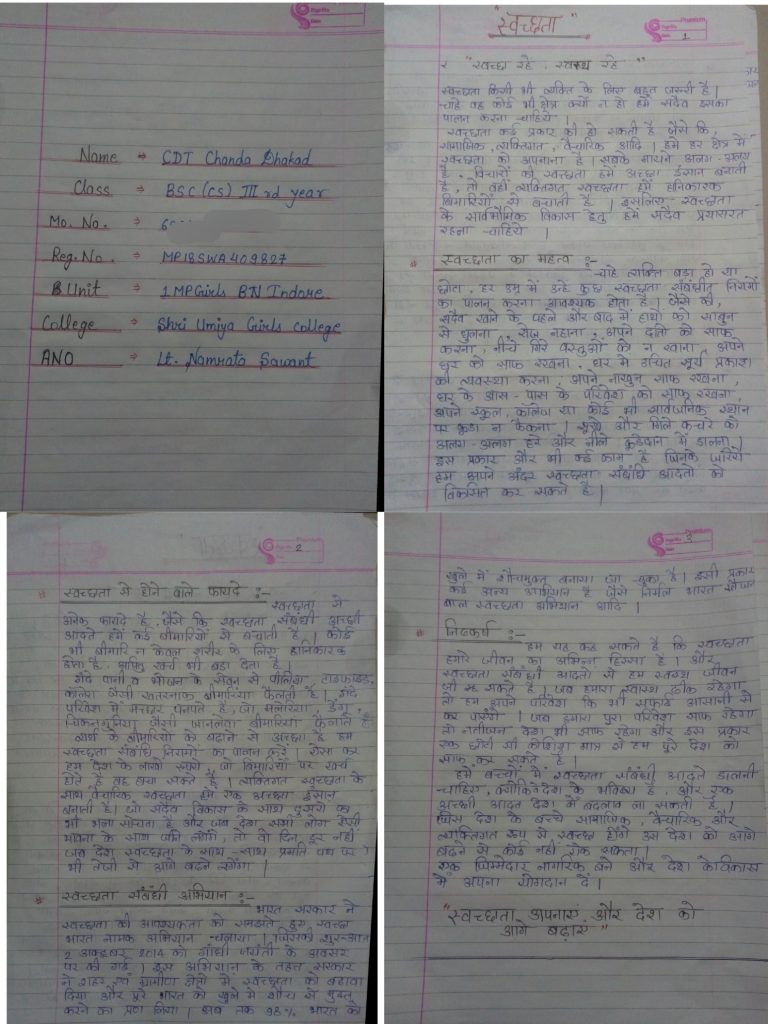 Name → CDT Chanda Dhakad
Class → BSC (CS) III rd year
Mo. No. → 6
Reg. No. → MP18SWA409827
B Unit → 1 MP Girls BN Indore
College → Shri Umiya Girls College
ANO → Lt. Namrata Sawant
"स्वच्छता"
1
"स्वच्छ रहे, स्वस्थ रहे"
स्वच्छता किसी भी व्यक्ति के लिए बहुत जरुरी है।
चाहे वह कोई भी क्षेत्र क्यों न हो हमें सदैव इसका
पालन करना चाहिये।
स्वच्छता कई प्रकार की हो सकती है जैसे कि,
सामाजिक, व्यक्तिगत, वैचारिक आदि। हमें हर क्षेत्र में
स्वच्छता को अपनाना है। सबके मायने अलग-अलग
है, विचारों की स्वच्छता हमें अच्छा इंसान बनाती
है, तो वही व्यक्तिगत स्वच्छता हमें हानिकारक
बिमारियों से बचाती है। इसलिए स्वच्छता
के सार्वभौमिक विकास हेतु हमें सदैव प्रयासरत
रहना चाहिये।
* स्वच्छता का महत्व :-
चाहे व्यक्ति बड़ा हो या
छोटा, हर उम्र में उन्हें कुछ स्वच्छता संबंधीत नियमों
का पालन करना आवश्यक होता है। जैसे की,
सदैव खाने के पहले और बाद में हाथों को साबुन
से धुलना, रोज नहाना, अपने दांतो को साफ
करना, नीचे गिरे वस्तुओं को न खाना, अपने
घर को साफ रखना, घर में उचित सूर्य प्रकाश
की व्यवस्था करना, अपने नाखुन साफ रखना,
घर के आस-पास के परिवेश को साफ रखना,
अपने स्कूल, कॉलेज या कोई भी सार्वजनिक स्थान
पर कूडा न फेंकना। सूखे और गिले कचरे को
अलग-अलग हरे और नीले कूडेदान में डालना।
इस प्रकार और भी कई काम है जिनके जरिये
हम अपने अंदर स्वच्छता संबंधि आदतों को
विकसित कर सकते है।
2
* स्वच्छता से होने वाले फायदे :-
स्वच्छता से
अनेक फायदे है, जैसे कि स्वच्छता संबंधी अच्छी
आदते हमें कई बीमारियों से बचाती है। कोई
भी बीमारि न केवल शरीर के लिए हानिकारक
होता है, अपितु खर्च भी बढा देता है।
गंदे पानी व भोजन के सेवन से पीलिया, टाइफाइड,
कॉलेरा जैसी खतरनाक बीमारियां फैलती है। गंदे
परिवेश में मच्छर पनपते है, जो मलेरिया, डेंगू,
चिकनगुनिया जैसी जानलेवा बीमारियां फैलाते है
व्यर्थ के बीमारियों को बढाने से अच्छा है हम
स्वच्छता संबंधि नियमों का पालन करें। ऐसा कर
हम देश के लाखों रुपये, जो बिमारियों पर खर्च
होते है वह बचा सकते है। व्यक्तिगत स्वच्छता के
साथ वैचारिक स्वच्छता हमें एक अच्छा इंसान
बनाती है। जो सदैव विकास के साथ दूसरों का
भी भला सोचता है और जब देश सभी लोग ऐसी
भावना के साथ जीने लगेंगे, तो वो दिन दूर नही
जब देश स्वच्छता के साथ-साथ प्रगति पथ पर
भी तेजी से आगे बढने लगेगा।
* स्वच्छता संबंधी अभियान :-
भारत सरकार ने
स्वच्छता की आवश्यकता को समझते हुए स्वच्छ
भारत नामक अभियान चलाया। जिसकी शुरुआत
2 अक्टूबर 2014 को गाँधी जयंती के अवसर
पर की गई। इस अभियान के तहत सरकार
ने शहर एवं ग्रामीण क्षेत्रो में स्वच्छता को बढावा
दिया और पूरे भारत को खुले में शौच से मुक्त
करने का प्रण लिया। अब तक 98% भारत को
3
खुले में शौचमुक्त बनाया जा चुका है। इसी प्रकार
कई अन्य अभियान है जैसे निर्मल भारत
बाल स्वच्छता अभियान आदि।
* निष्कर्ष :-
हम यह कह सकते है कि स्वच्छता
हमारे जीवन का अभिन्न हिस्सा है। और
स्वच्छता संबंधी आदतों से हम स्वस्थ जीवन
जी सकते है। जब हमारा स्वास्थ ठीक रहेगा
तो हम अपने परिवेश कि भी सफाई आसानी से
कर पायेंगे। जब हमारा पुरा परिवेश साफ रहेगा
तो नतीजन देश भी साफ रहेगा और इस प्रकार
एक छोटी सी कोशिश मात्र से हम पुरे देश को
साफ कर सकते है।
हमें बच्चों में स्वच्छता संबंधी आदते डालनी
चाहिए, क्योंकि वे देश के भविष्य है, और एक
अच्छी आदत देश में बदलाव ला सकती है।
जिस देश के बच्चे सामाजिक, वैचारिक और
व्यक्तिगत रूप से स्वच्छ होंगे उस देश को आगे
बढने से कोई नहीं रोक सकता।
एक जिम्मेदार नागरिक बने और देश के विकास
में अपना योगदान दें।
"स्वच्छता अपनाए और देश को
आगे बढ़ाए"